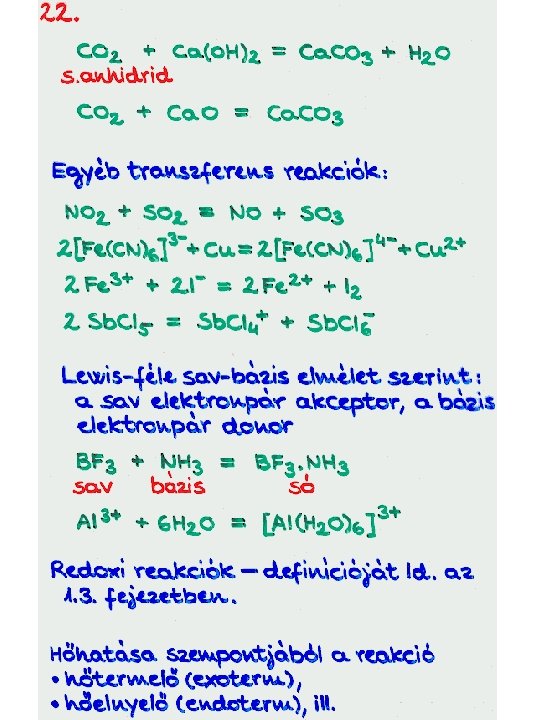 22.
CO₂ + Ca(OH)₂ = CaCO₃ + H₂O
s.anhidrid
CO₂ + CaO = CaCO₃
Egyéb transzferens reakciók:
NO₂ + SO₂ = NO + SO₃
2[Fe(CN)₆]³⁻ + Cu = 2[Fe(CN)₆]⁴⁻ + Cu²⁺
2 Fe³⁺ + 2I⁻ = 2 Fe²⁺ + I₂
2 SbCl₅ = SbCl₄⁺ + SbCl₆⁻
Lewis-féle sav-bázis elmélet szerint:
a sav elektronpár akceptor, a bázis
elektronpár donor
BF₃ + NH₃ = BF₃.NH₃
sav bázis só
Al³⁺ + 6H₂O = [Al(H₂O)₆]³⁺
Redoxi reakciók – definícióját ld. az
1.3. fejezetben.
Hőhatása szempontjából a reakció
• hőtermelő (exoterm),
• hőelnyelő (endoterm), ill.